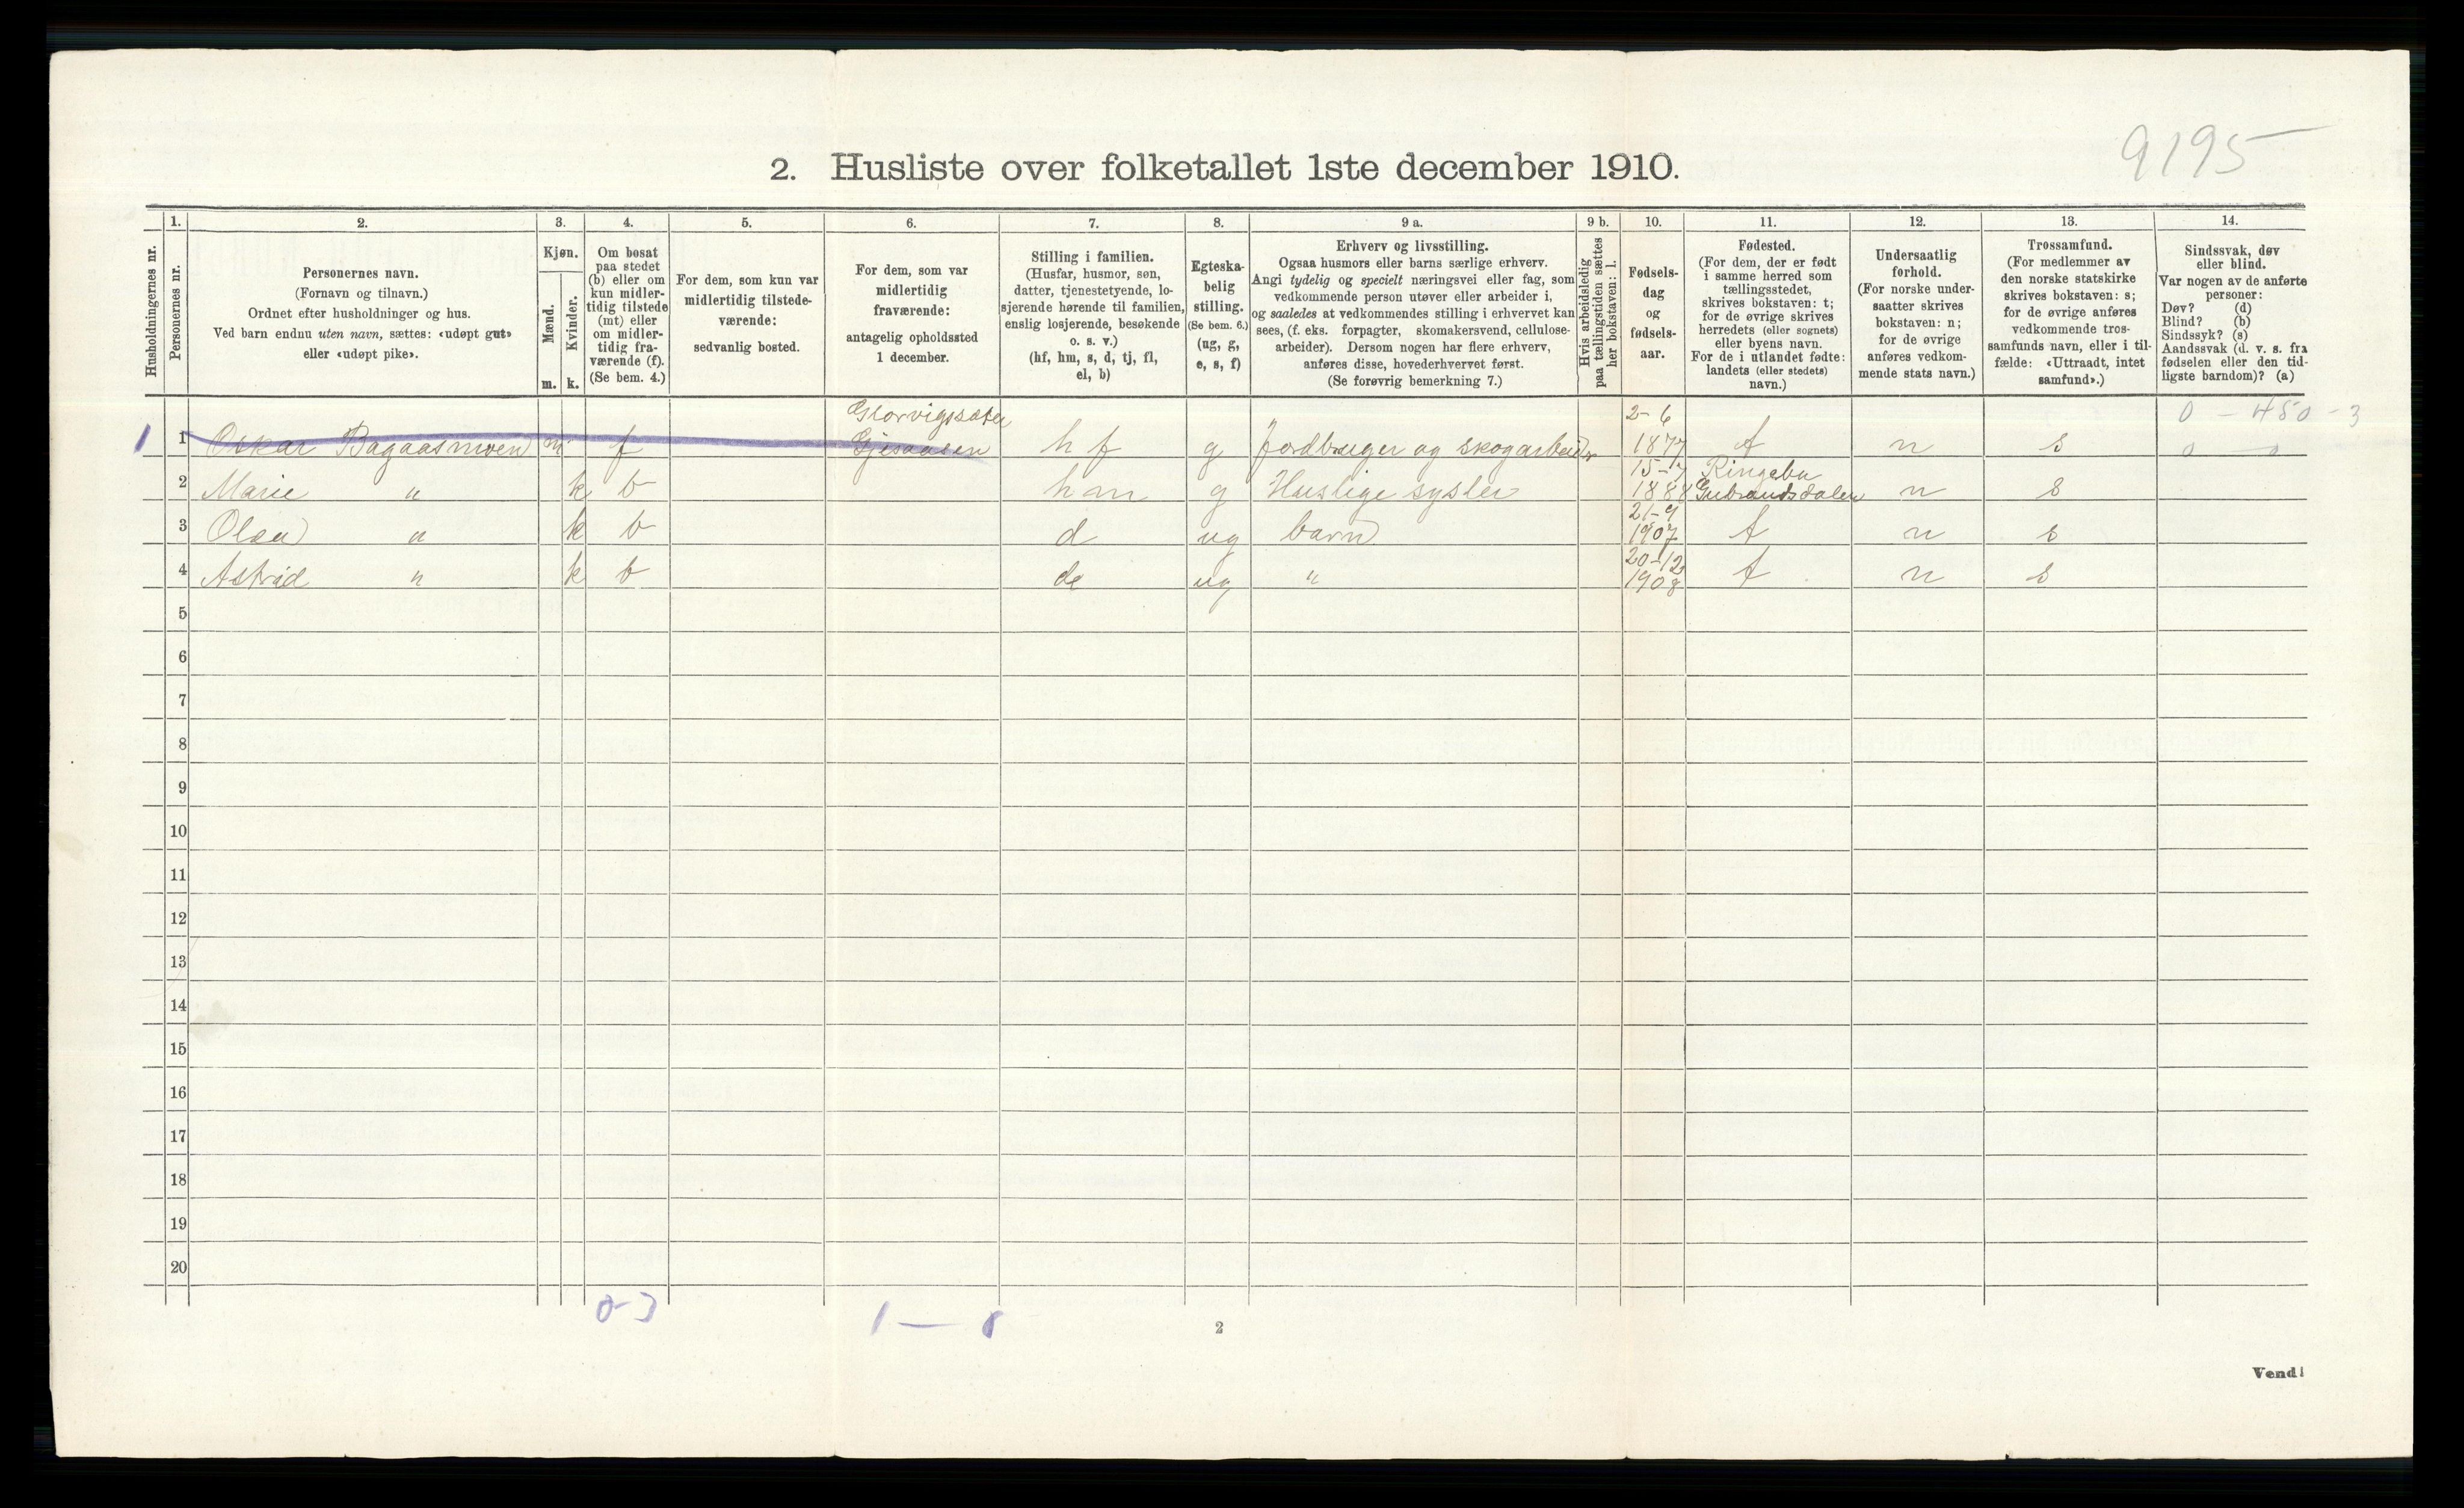 9195
2. Husliste over folketallet 1ste december 1910.
Husholdningernes nr.
1.
Personernes nr.
2.
Personernes navn.
(Fornavn og tilnavn.)
Ordnet efter husholdninger og hus.
Ved barn endnu uten navn, sættes: «udøpt gut»
eller «udøpt pike».
3.
Kjøn.
Mænd.
m.
Kvinder.
k.
4.
Om bosat
paa stedet
(b) eller om
kun midler-
tidig tilstede
(mt) eller
om midler-
tidig fra-
værende (f).
(Se bem. 4.)
5.
For dem, som kun var
midlertidig tilstede-
værende:
sedvanlig bosted.
6.
For dem, som var
midlertidig
fraværende:
antagelig opholdssted
1 december.
7.
Stilling i familien.
(Husfar, husmor, søn,
datter, tjenestetyende, lo-
sjerende hørende til familien,
enslig losjerende, besøkende
o. s. v.)
(hf, hm, s, d, tj, fl,
el, b)
8.
Egteska-
belig
stilling.
(Se bem. 6.)
(ug, g,
e, s, f)
9 a.
Erhverv og livsstilling.
Ogsaa husmors eller barns særlige erhverv.
Angi tydelig og specielt næringsvei eller fag, som
vedkommende person utøver eller arbeider i,
og saaledes at vedkommendes stilling i erhvervet kan
sees, (f. eks. forpagter, skomakersvend, cellulose-
arbeider). Dersom nogen har flere erhverv,
anføres disse, hovederhvervet først.
(Se forøvrig bemerkning 7.)
9 b.
Hvis arbeidsledig
paa tællingstiden sættes
her bokstaven: l.
10.
Fødsels-
dag
og
fødsels-
aar.
11.
Fødested.
(For dem, der er født
i samme herred som
tællingsstedet,
skrives bokstaven: t;
for de øvrige skrives
herredets (eller sognets)
eller byens navn.
For de i utlandet fødte:
landets (eller stedets)
navn.)
12.
Undersaatlig
forhold.
(For norske under-
saatter skrives
bokstaven: n;
for de øvrige
anføres vedkom-
mende stats navn.)
13.
Trossamfund.
(For medlemmer av
den norske statskirke
skrives bokstaven: s;
for de øvrige anføres
vedkommende tros-
samfunds navn, eller i til-
fælde: «Uttraadt, intet
samfund».)
14.
Sindssvak, døv
eller blind.
Var nogen av de anførte
personer:
Døv? (d)
Blind? (b)
Sindssyk? (s)
Aandssvak (d. v. s. fra
fødselen eller den tid-
ligste barndom)? (a)
Glorvigsæter 2-6 0 - 450 - 3
1 1 Oskar Bagaasmoen m f Gjesaasen hf g Jordbruger og skogarbeider 1877 t n s 0 0
15-7 Ringebu
2 Marie " k b hm g Huslige sysler 1888 Gubrandsdalen n s
21-9
3 Olea " k b d ug barn 1907 t n s
20-12
4 Astrid " k b d ug " 1908 t n s
5
6
7
8
9
10
11
12
13
14
15
16
17
18
19
20
0-3 1 —
2
Vend!